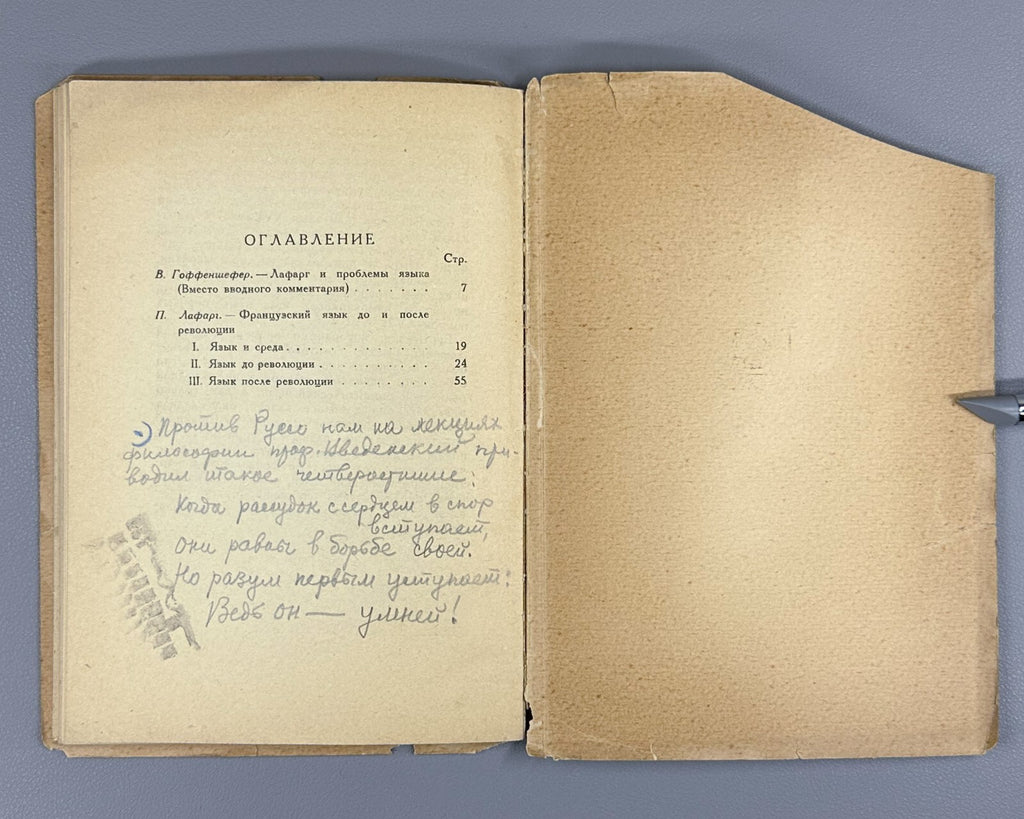 ОГЛАВЛЕНИЕ
Стр.
В. Гоффеншефер. — Лафарг и проблемы языка
(Вместо вводного комментария) . . . . . . . 7
П. Лафарг. — Французский язык до и после
революции
I. Язык и среда . . . . . . . . . . . . 19
II. Язык до революции . . . . . . . . . . 24
III. Язык после революции . . . . . . . . 55
Против Руссо нам на лекциях
философии проф. Введенский при-
водил такое четверостишие:
Когда рассудок с сердцем в спор
вступает,
Они равны в борьбе своей.
Но разум первым уступает:
Ведь он — умней!